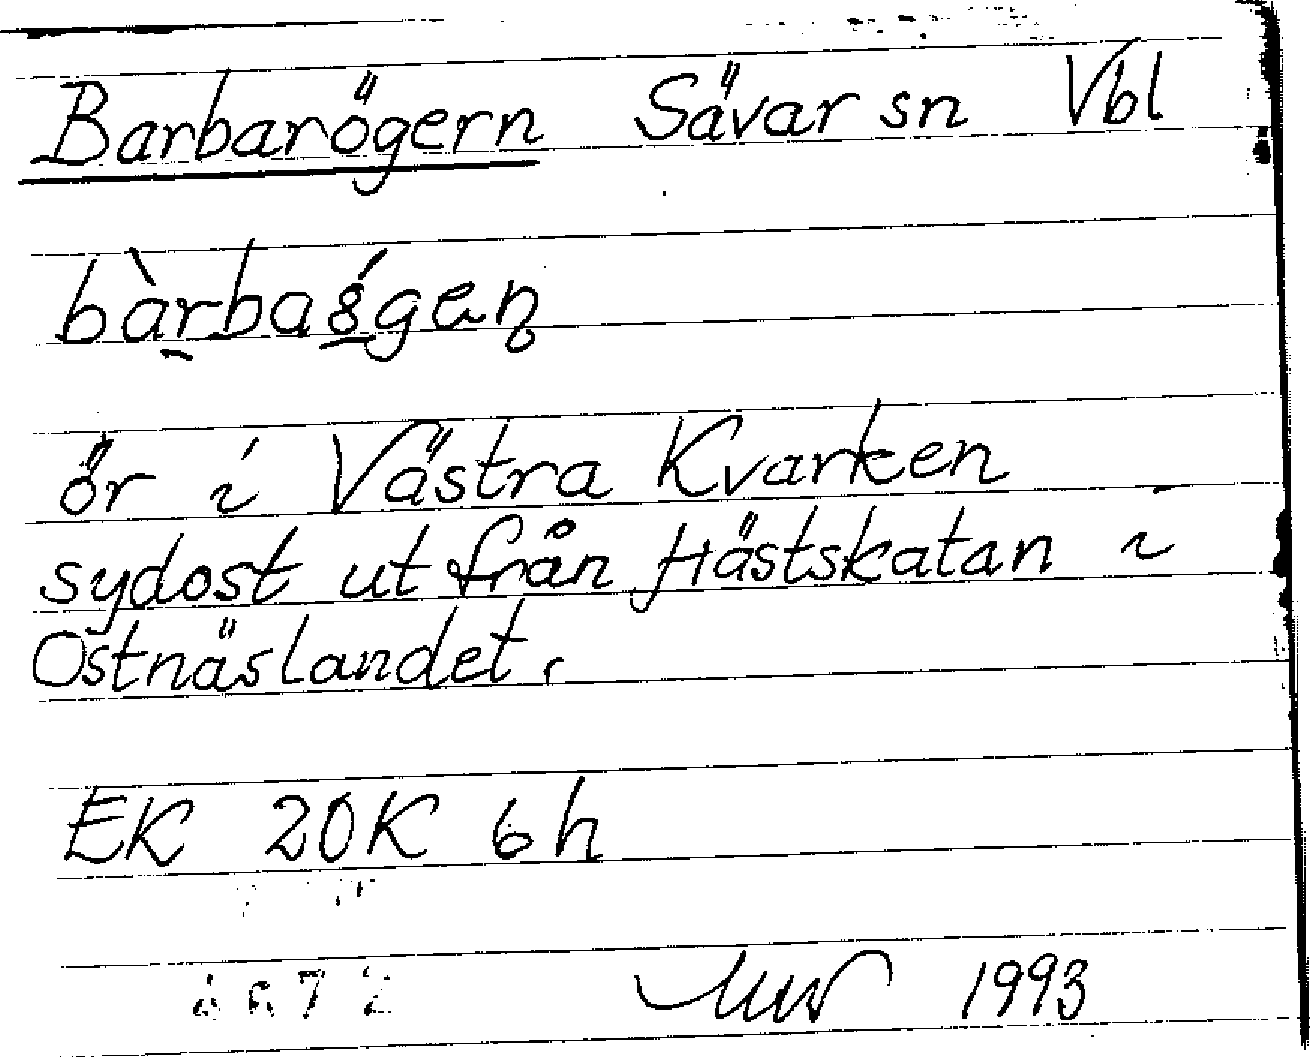 Barbarögern Sävar sn Vbl
ör i Västra Kvarken
sydost ut från Hästskatan i
Ostnäslandet.
EK 20K 6h
1993